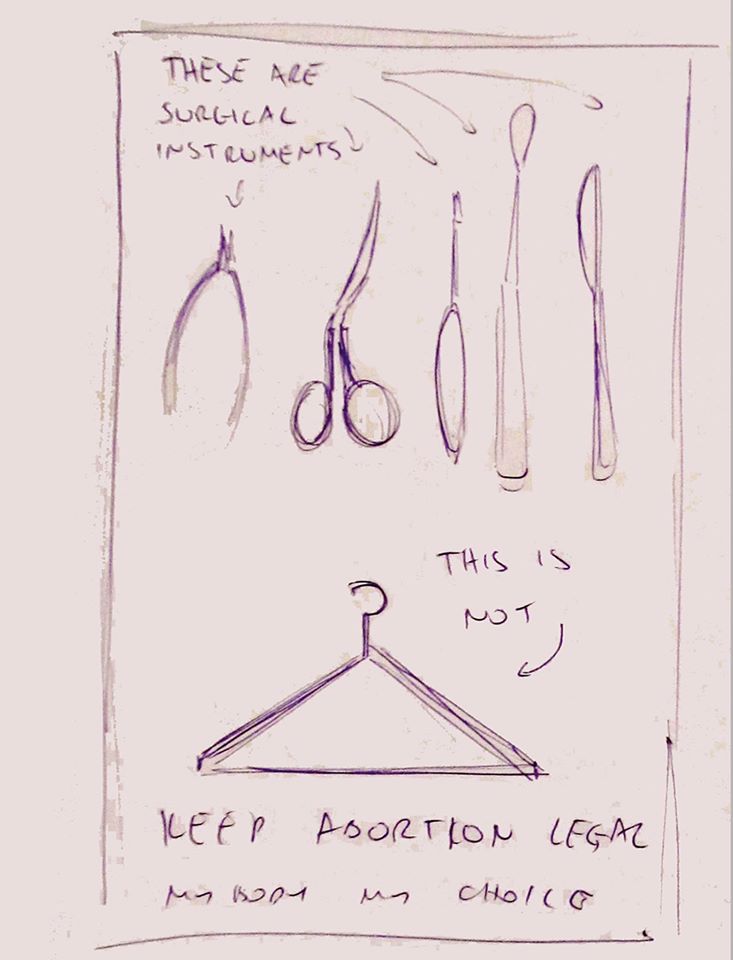 THESE ARE
SURGICAL
INSTRUMENTS
THIS IS
NOT
KEEP ABORTION LEGAL
MY BODY MY CHOICE